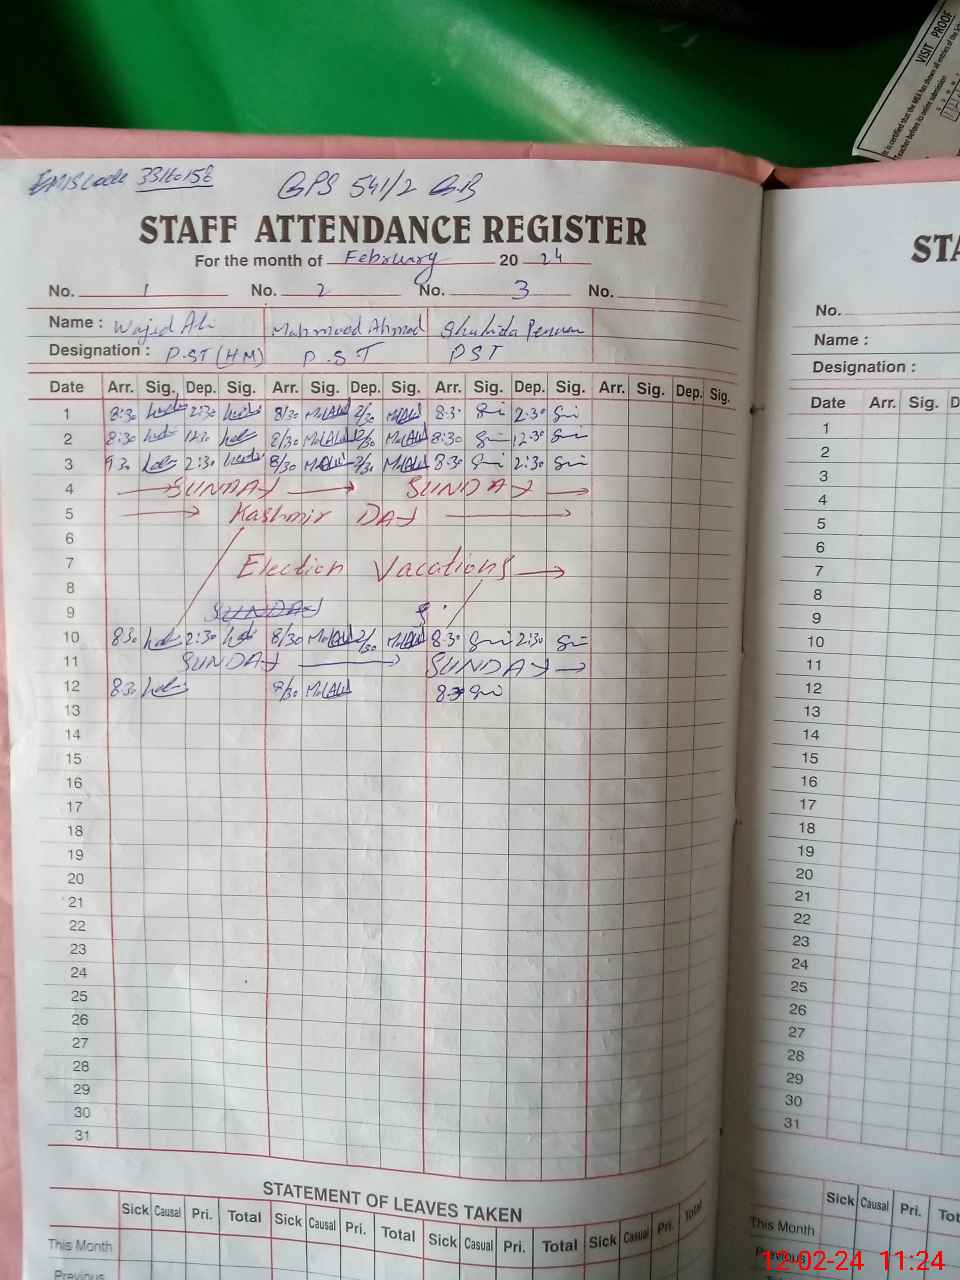 VISIT PROOF
EMIS Code 33160158 GPS 541/2 G.B
STAFF ATTENDANCE REGISTER
For the month of February 20 24
No. 1 No. 2 No. 3 No.
Name : Wajid Ali Mahmood Ahmad Shahida
Designation : P.ST (HM) P.S.T PST
Date Arr. Sig. Dep. Sig. Arr. Sig. Dep. Sig. Arr. Sig. Dep. Sig. Arr. Sig. Dep. Sig.
1 8:30 2:30 8/30 2/30 8:30 2:30
2 8:30 12:30 8/30 12/30 8:30 12:30
3 2:30 8/30 2/30 8:30 2:30
4 SUNDAY SUNDAY
5 Kashmir DAY
6
7 Election Vacations
8
9 SUNDAY
10 8:30 2:30 8/30 2/30 8:30 2:30
11 SUNDAY SUNDAY
12 8:30 8:30
13
14
15
16
17
18
19
20
21
22
23
24
25
26
27
28
29
30
31
STATEMENT OF LEAVES TAKEN
Sick Causal Pri. Total Sick Causal Pri. Total Sick Casual Pri. Total Sick Casual Pri. Total
This Month
Previous
STA
No.
Name :
Designation :
Date Arr. Sig. D
1
2
3
4
5
6
7
8
9
10
11
12
13
14
15
16
17
18
19
20
21
22
23
24
25
26
27
28
29
30
31
Sick Causal Pri. Tot
This Month
Previous
12-02-24 11:24